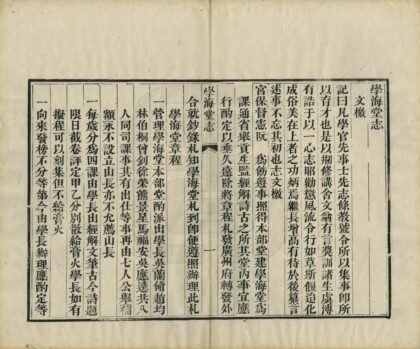 學海堂志
文檄
記曰凡學官先事士先志條教號令所以集事即所
以育才也是以撰修講舍文翁有言獎訓諸生虞溥
有誥于以一心志昭勸懲風流令行如草斯偃迨化
成俗美在上者之功炳焉繼長增高有待於後纂言
述事不忘其初也志文檄
宮保督憲阮 為飭遵事照得本部堂建學海堂為
課通省舉貢生監經解詩古之所其堂內事宜應
行酌定以垂久遠除將章程札發廣州府轉發外
學海堂志 一
合就鈔錄札知學海堂札到即便遵照辦理此札
學海堂章程
一管理學海堂本部堂酌派出學長吳蘭修趙均
林伯桐曾釗徐榮熊景星馬福安吳應逵共八
人同司課事其有出仕等事再由七人公舉補
額永不設立山長亦不允薦山長
一每歲分為四課由學長出經解文筆古今詩題
限日截卷評定甲乙分別散給膏火學長如有
擬程可以刻集但不給膏火
一向來發榜不分等第今由學長辦理應酌定等